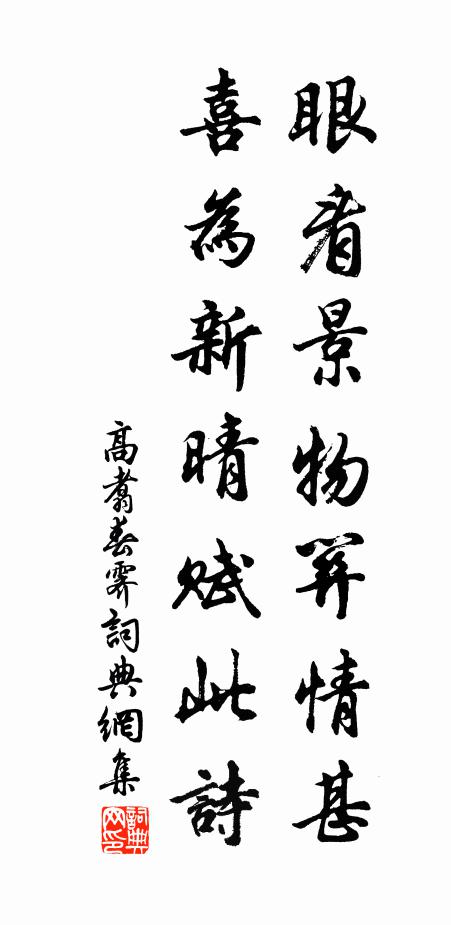 眼看景物關情甚
喜為新晴賦此詩
高翥春霽詞典網集
詞典
网印